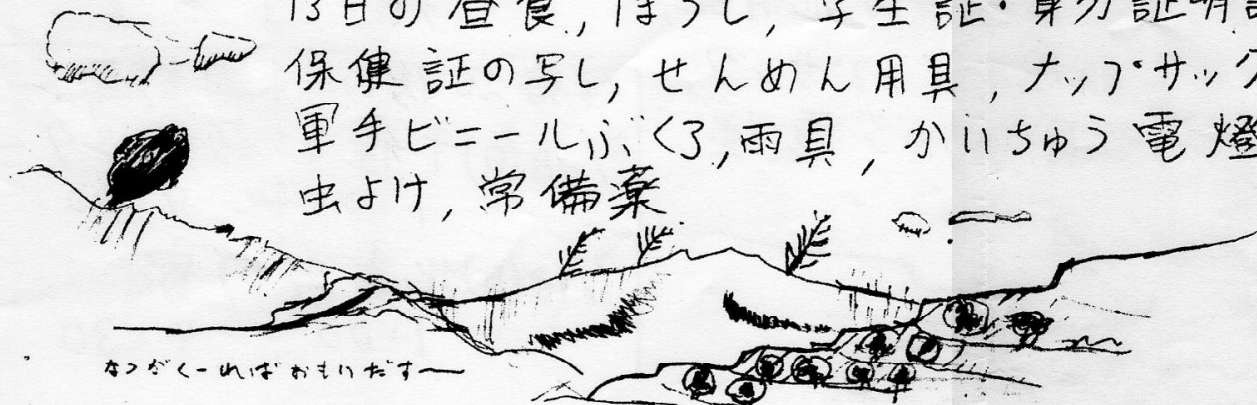 13日の昼食, ぼうし, 学生証・身分証明証
保健証の写し, せんめん用具, ナップサック
軍手ビニールぶくろ, 雨具, かいちゅう電燈
虫よけ, 常備薬
なつがくーればおもいだすー